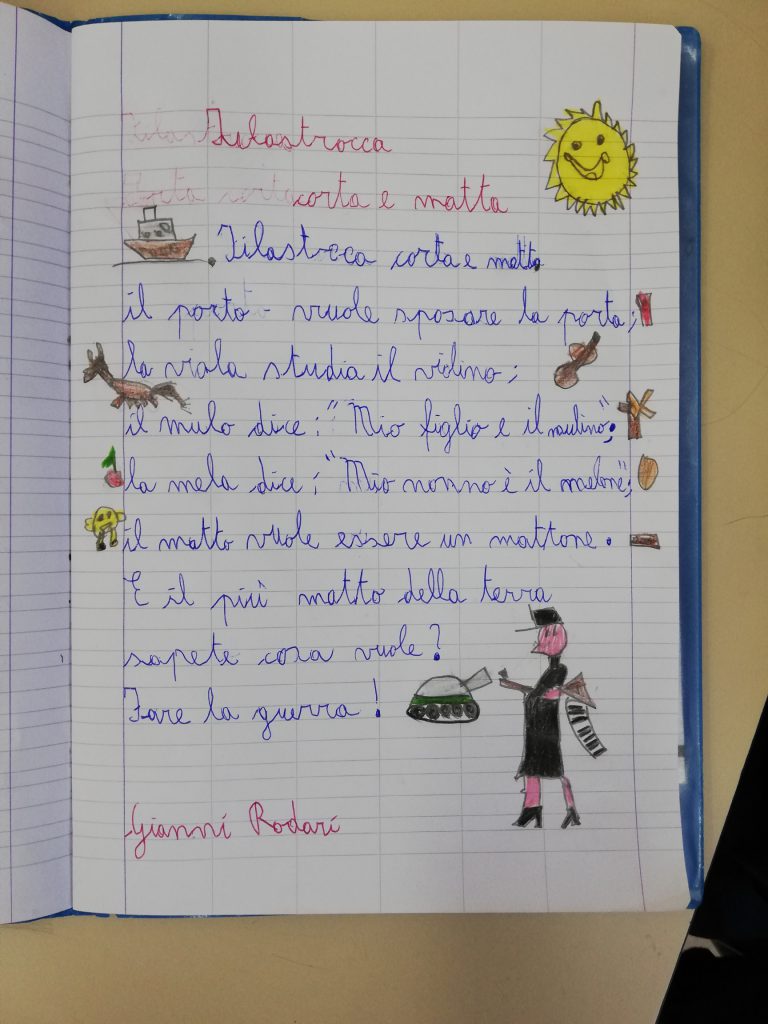 Filastrocca
corta e matta
Filastrocca corta e matta
il porto vuole sposare la porta;
la viola studia il violino;
il mulo dice: "Mio figlio e il mulino";
la mela dice: "Mio nonno è il melone";
il matto vuole essere un mattone.
E il più matto della terra
sapete cosa vuole?
Fare la guerra!
Gianni Rodari